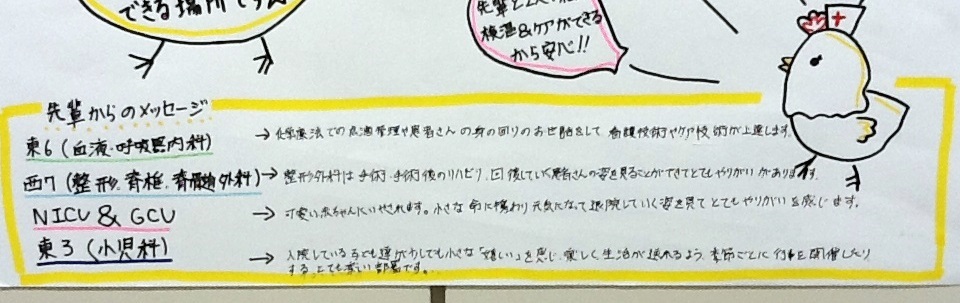 できる場所です
先輩と
検温&ケアができる
から安心!!
先輩からのメッセージ
東6(血液・呼吸器内科)
→化学療法での点滴管理や患者さんの身の回りのお世話をして、看護技術やケア技術が上達します。
西7(整形、脊椎、脊髄外科)
→整形外科は手術・手術後のリハビリ、回復していく患者さんの姿を見ることができてとてもやりがいがあります。
NICU & GCU
→可愛い赤ちゃんにいやされます。小さな命に携わり元気になって退院していく姿を見てとてもやりがいを感じます。
東3(小児科)
→入院している子ども達が少しでも小さな「嬉しい」を感じ、楽しく生活が送れるよう、季節ごとに行事を開催したり
する、とても楽しい部署です。